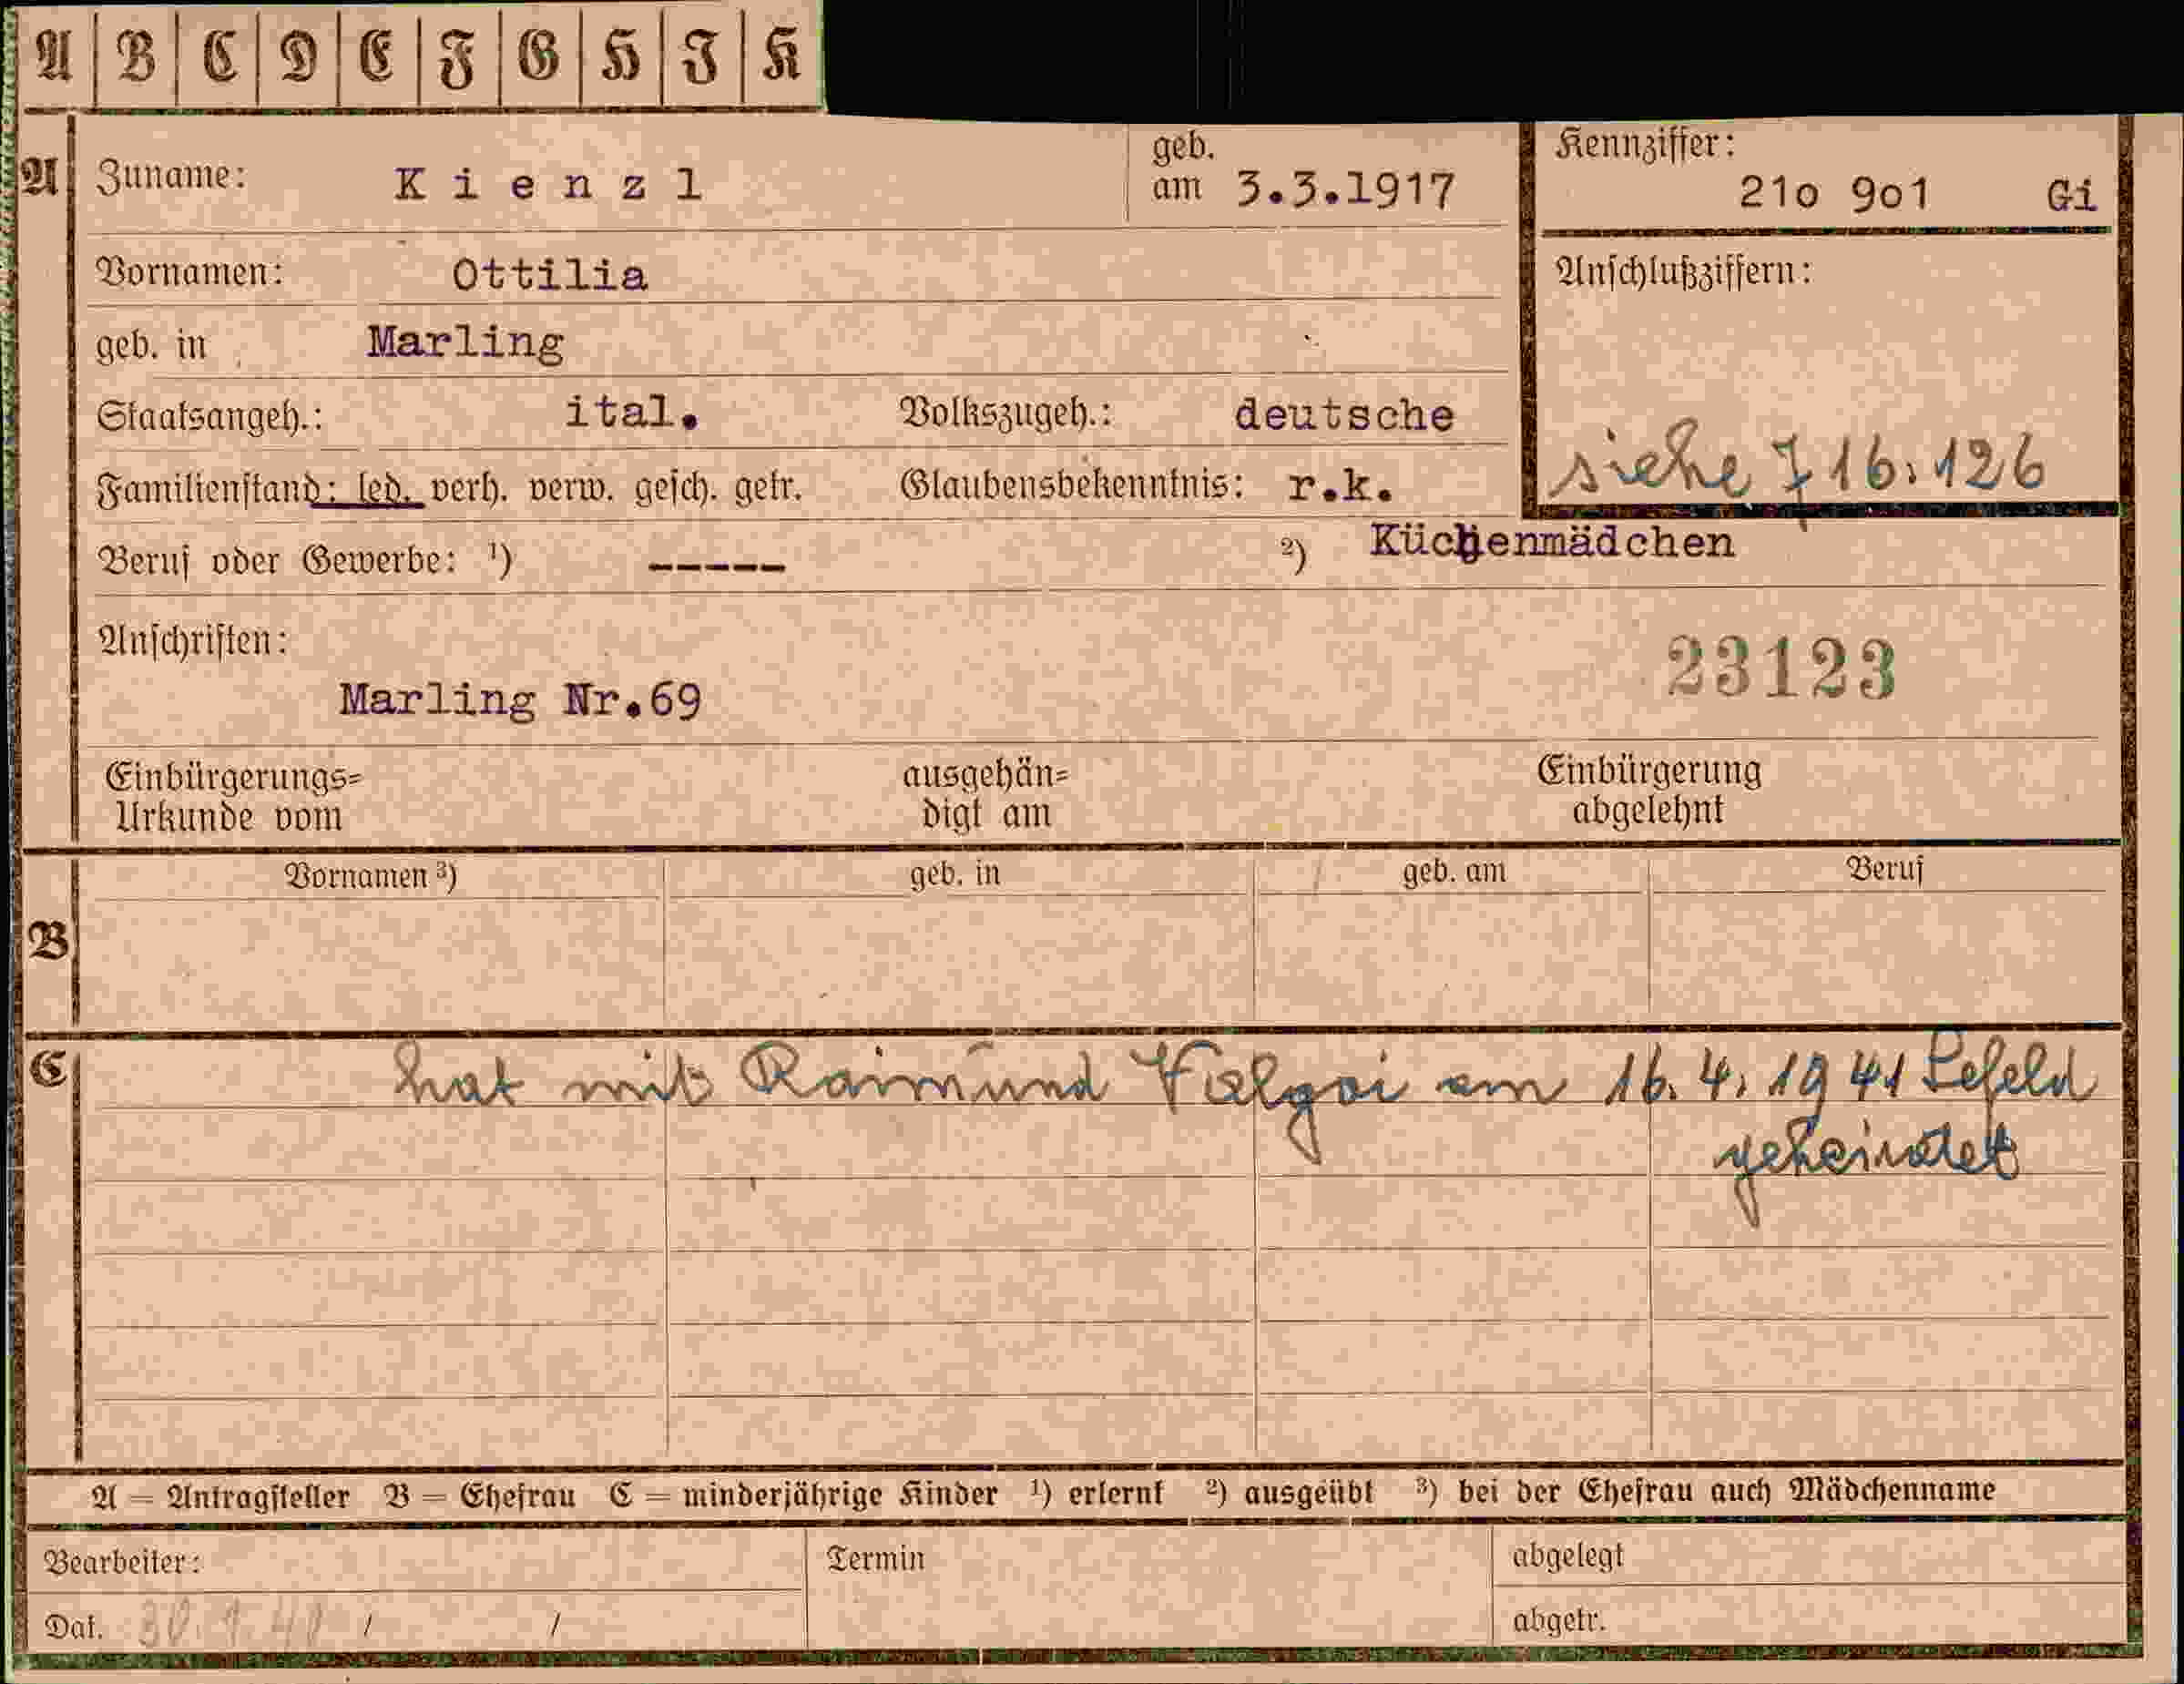 A B C D E F G H I K
A Zuname: Kienzl geb. am 3.3.1917 Kennziffer: 21o 9o1 Gi
Vornamen: Ottilia Anschlußziffern:
geb. in Marling
Staatsangeh.: ital. Volkszugeh.: deutsche
siehe 716.126
Familienstand: led. verh. verw. gesch. getr. Glaubensbekenntnis: r.k.
Beruf oder Gewerbe: 1) ----- 2) Küchenmädchen
Anschriften:
23123
Marling Nr.69
Einbürgerungs= ausgehän= Einbürgerung
Urkunde vom digt am abgelehnt
Vornamen 3) geb. in geb. am Beruf
B
C hat mit Raimund am 16.4.1941
geheiratet
A = Antragsteller B = Ehefrau C = minderjährige Kinder 1) erlernt 2) ausgeübt 3) bei der Ehefrau auch Mädchenname
Bearbeiter: Termin abgelegt
Dat. / / abgetr.